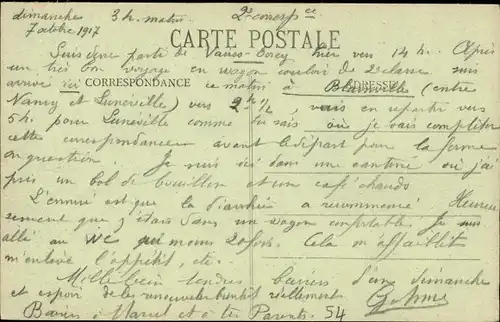 dimanche 3 h. matin 2e corresp ce
7 octobre 1917
CARTE POSTALE
Suis donc parti de hier vers 14 h. Après
un très bon voyage en wagon couloir de 2e classe suis
arrivé ici ce matin à Blainville (entre
CORRESPONDANCE ADRESSE
Nancy et Lunéville) vers 2 h 1/2, vais en repartir vers
5 h. pour Lunéville comme tu sais où je vais compléter
cette correspondance avant le départ pour la ferme
en question. Je suis ici dans une cantine où j'ai
pris un bol de bouillon et un café chauds
L'ennui est que la diarrhée a recommencé Heureu
sement que j'étais dans un wagon confortable Je suis
allé au WC au moins 20 fois. Cela m'affaiblit
m'enlève l'appétit, etc.
Mille bien tendres baisers d'un dimanche
et espoir de les renouveler bientôt réellement
Baisers à Marcel et à tes Parents. 54